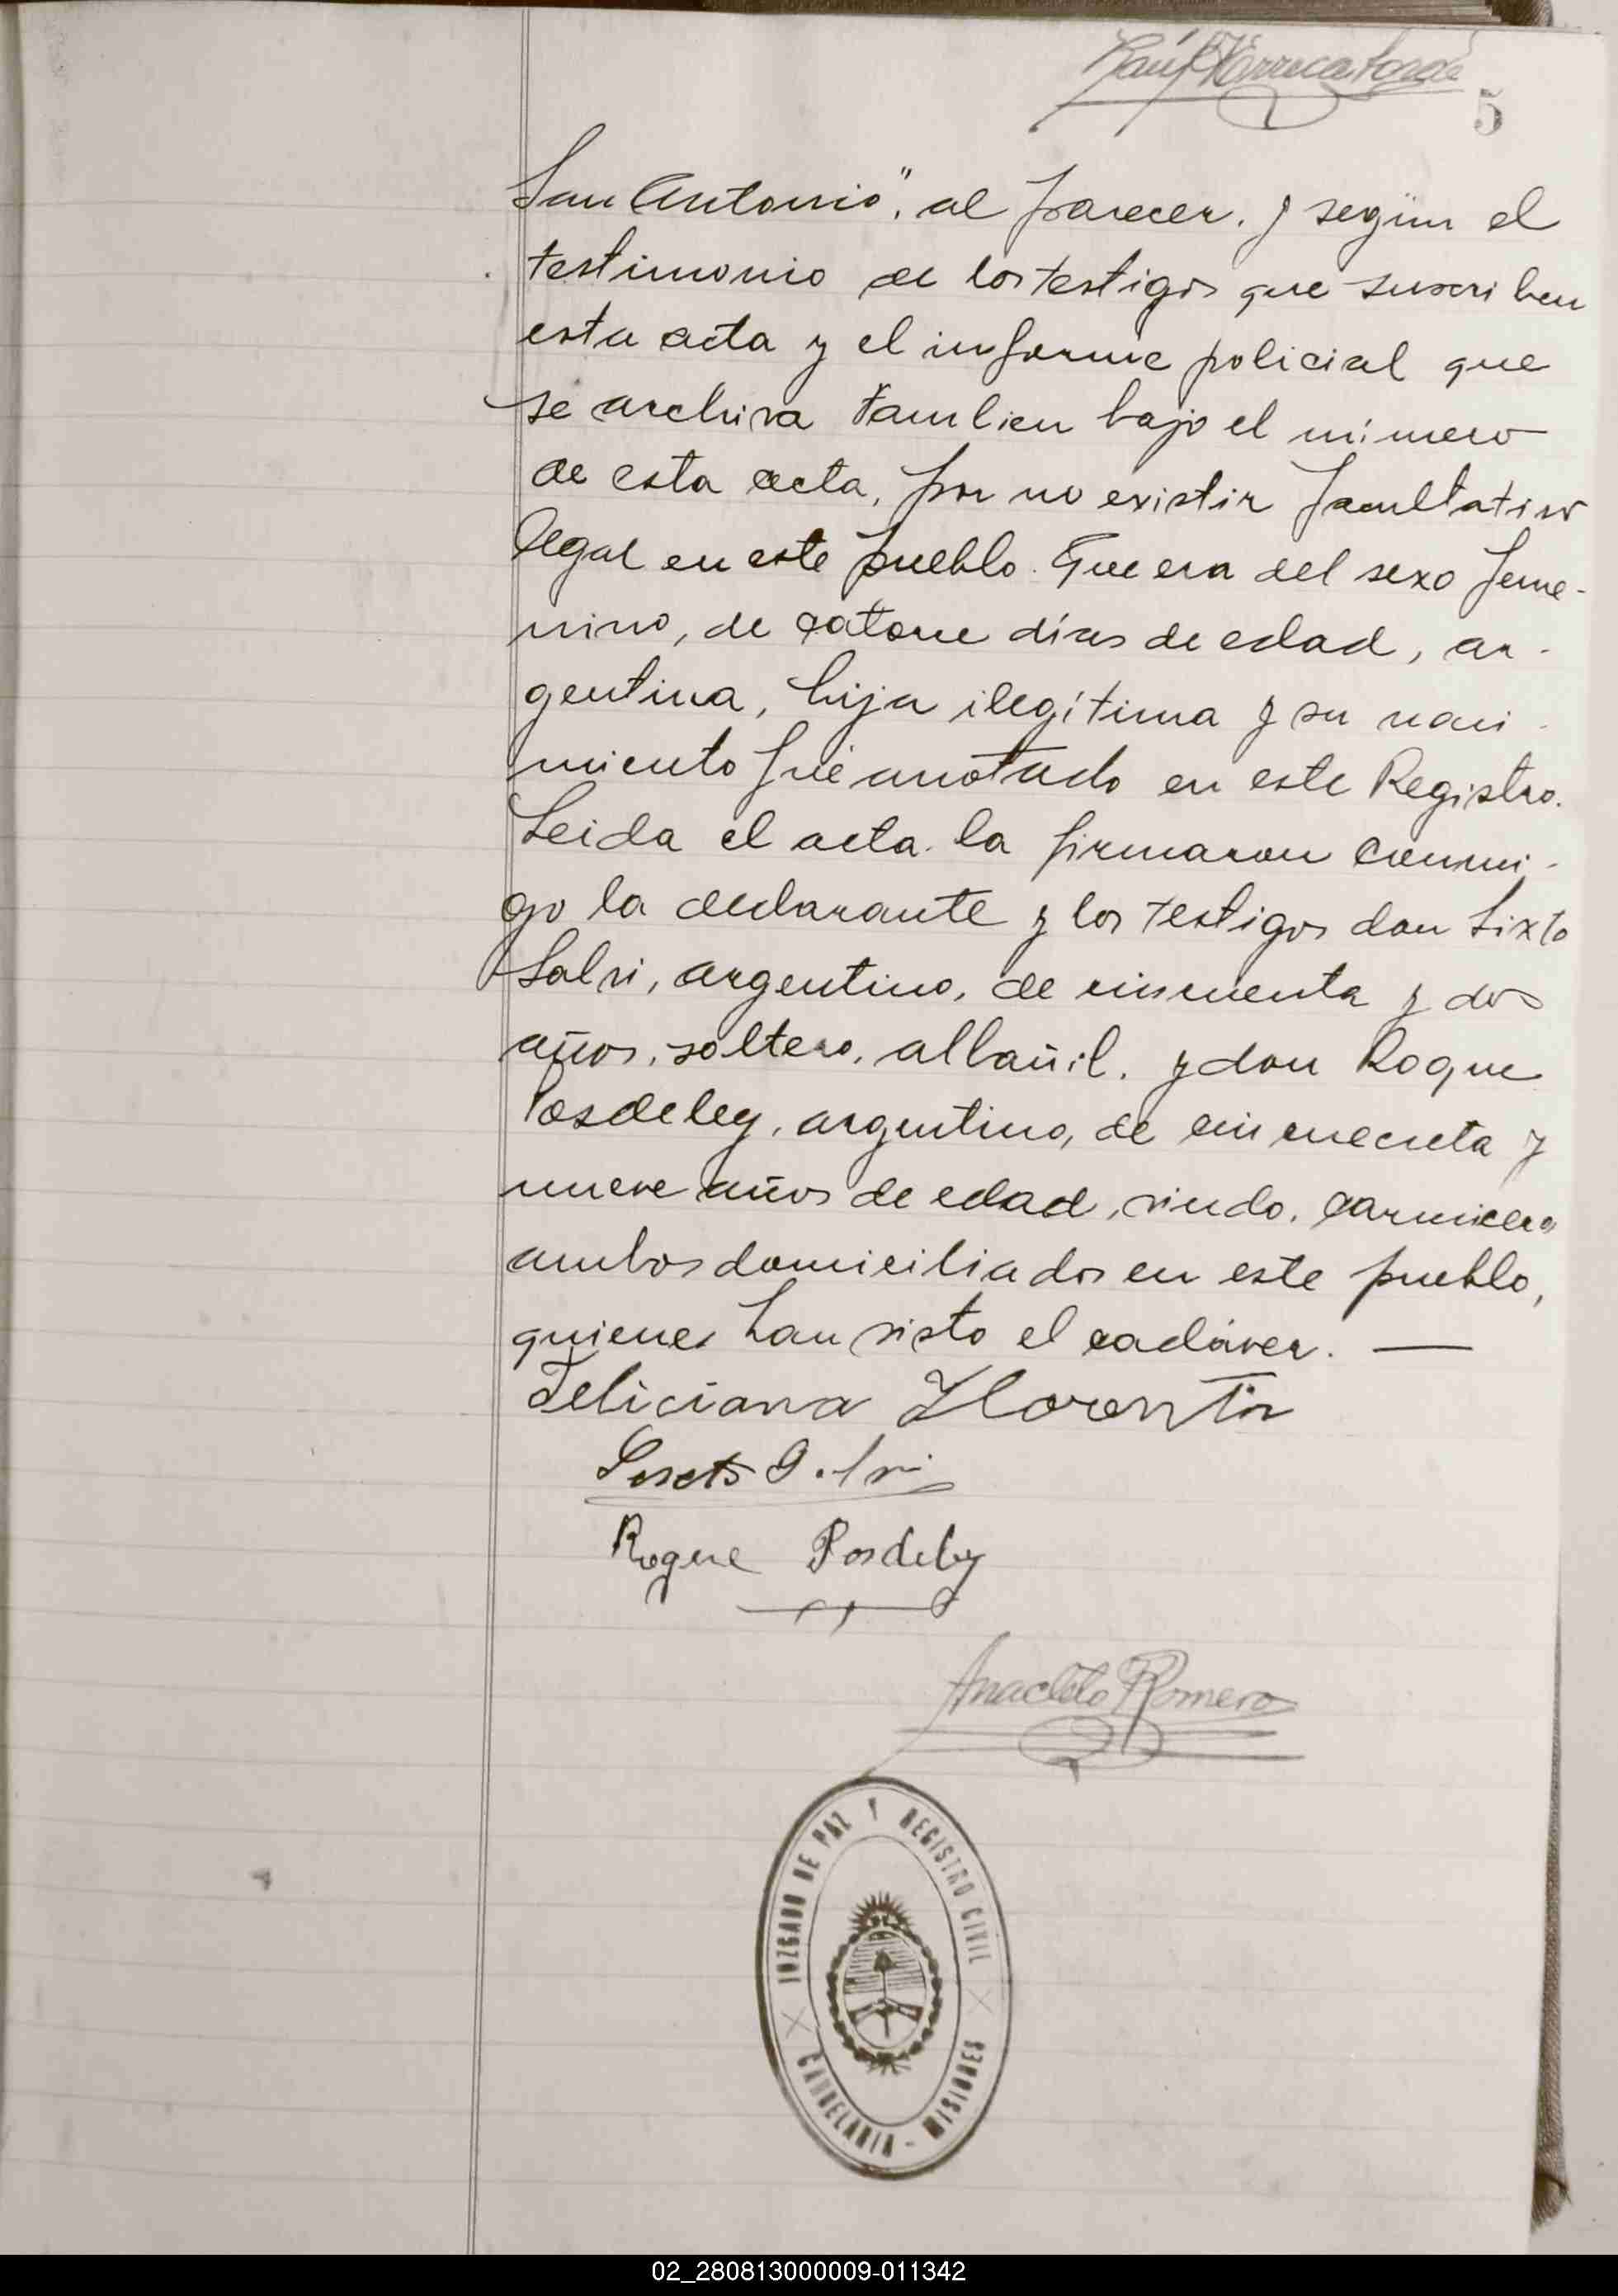 5
San Antonio", al parecer, y según el
testimonio de los testigos que suscriben
esta acta y el informe policial que
se archiva tambien bajo el número
de esta acta, por no existir facultativo
legal en este pueblo. Que era del sexo feme-
nino, de catorce días de edad, ar-
gentina, hija ilegítima y su naci-
miento fué anotado en este Registro.
Leida el acta la firmaron conmi-
go la declarante y los testigos don Sixto
Salvi, argentino, de cincuenta y dos
años, soltero, albañil, y don Roque
Posdeley, argentino, de cincuenta y
nueve años de edad, viudo, carnicero
ambos domiciliados en este pueblo,
quienes han visto el cadáver. —
Feliciana Florentin
Roque Posdeley
Anacleto Romero
JUZGADO DE PAZ Y REGISTRO CIVIL
CANDELARIA - MISIONES
02_280813000009-011342